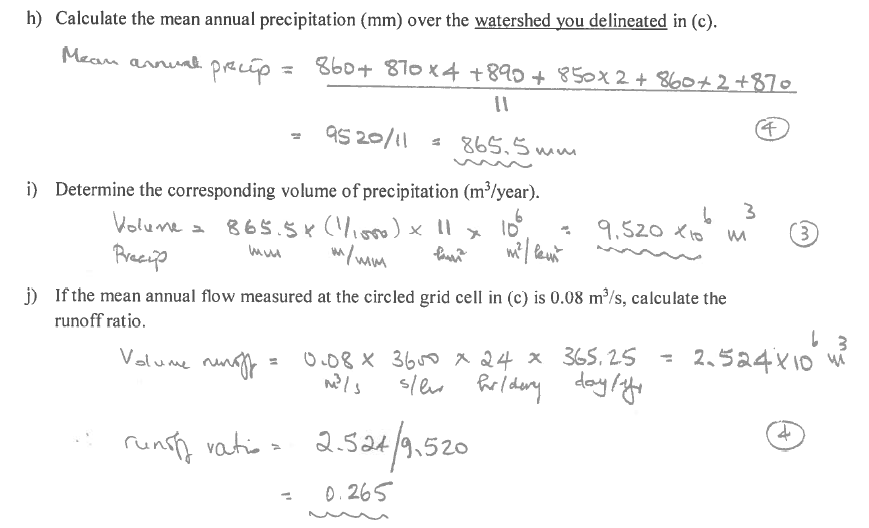 h) Calculate the mean annual precipitation (mm) over the watershed you delineated in (c).
Mean annual precip = 860+ 870×4 +890 + 850×2 + 860×2 +870
11
= 9520/11 = 865.5 mm
4
i) Determine the corresponding volume of precipitation (m³/year).
Volume = 865.5 × (1/1000) × 11 × 10⁶ = 9.520 ×10⁶ m³
3
Precip mm m/mm km² m²/km²
j) If the mean annual flow measured at the circled grid cell in (c) is 0.08 m³/s, calculate the
runoff ratio.
Volume runoff = 0.08 × 3600 × 24 × 365.25 = 2.524×10⁶ m³
m³/s s/hr hr/day day/yr
∴ runoff ratio = 2.524/9.520
4
= 0.265